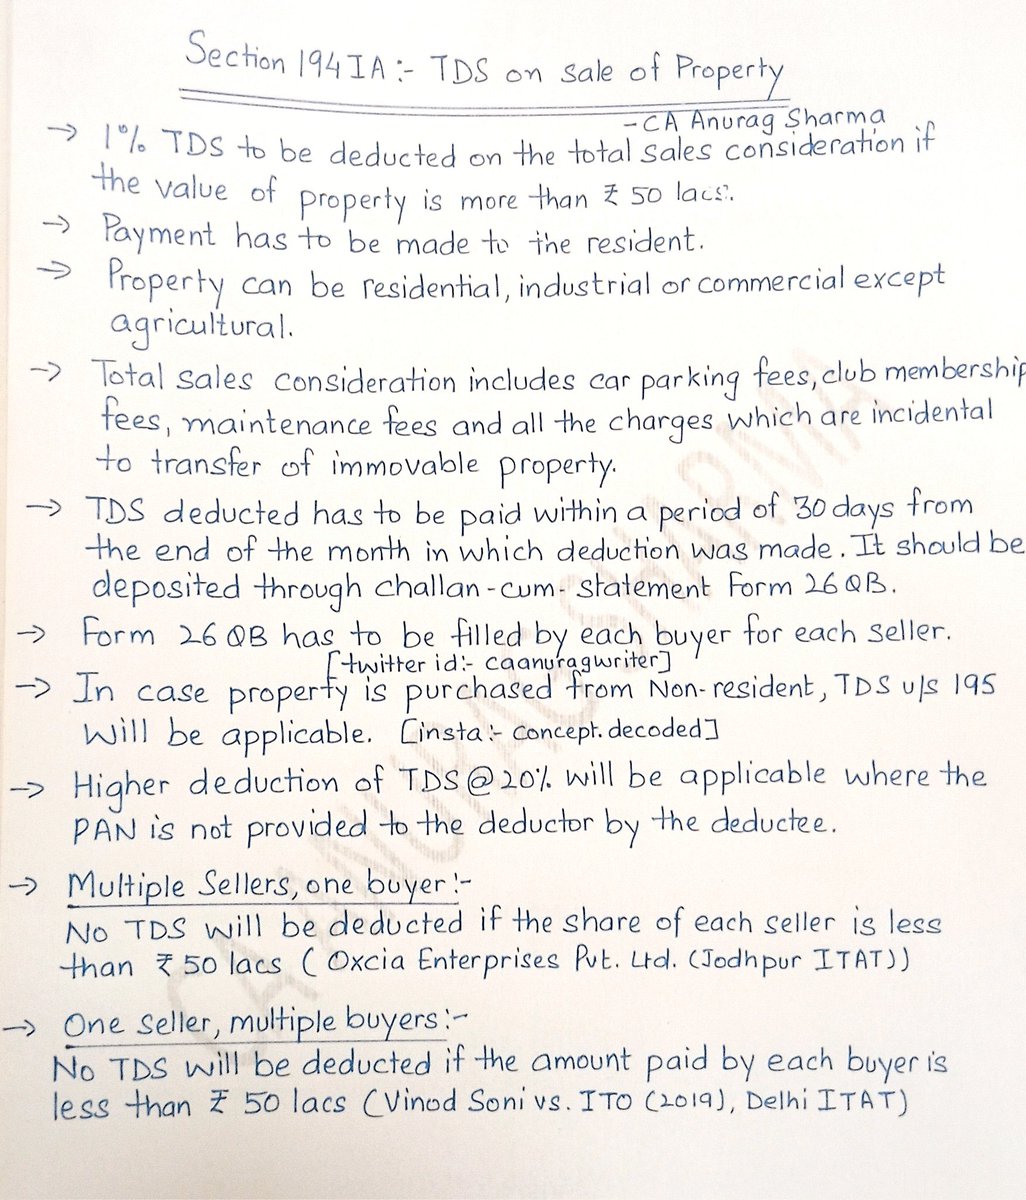 Section 194IA:- TDS on sale of Property
-CA Anurag Sharma
→ 1% TDS to be deducted on the total sales consideration if
the value of property is more than ₹ 50 lacs.
→ Payment has to be made to the resident.
→ Property can be residential, industrial or commercial except
agricultural.
→ Total sales consideration includes car parking fees, club membership
fees, maintenance fees and all the charges which are incidental
to transfer of immovable property.
→ TDS deducted has to be paid within a period of 30 days from
the end of the month in which deduction was made. It should be
deposited through challan-cum-statement Form 26QB.
→ Form 26QB has to be filled by each buyer for each seller.
[twitter id:- caanuragwriter]
→ In case property is purchased from Non-resident, TDS u/s 195
will be applicable. [insta:- concept.decoded]
→ Higher deduction of TDS @20% will be applicable where the
PAN is not provided to the deductor by the deductee.
→ Multiple Sellers, one buyer:-
No TDS will be deducted if the share of each seller is less
than ₹ 50 lacs (Oxcia Enterprises Pvt. Ltd. (Jodhpur ITAT))
→ One seller, multiple buyers:-
No TDS will be deducted if the amount paid by each buyer is
less than ₹ 50 lacs (Vinod Soni vs. ITO (2019), Delhi ITAT)
CA ANURAG SHARMA